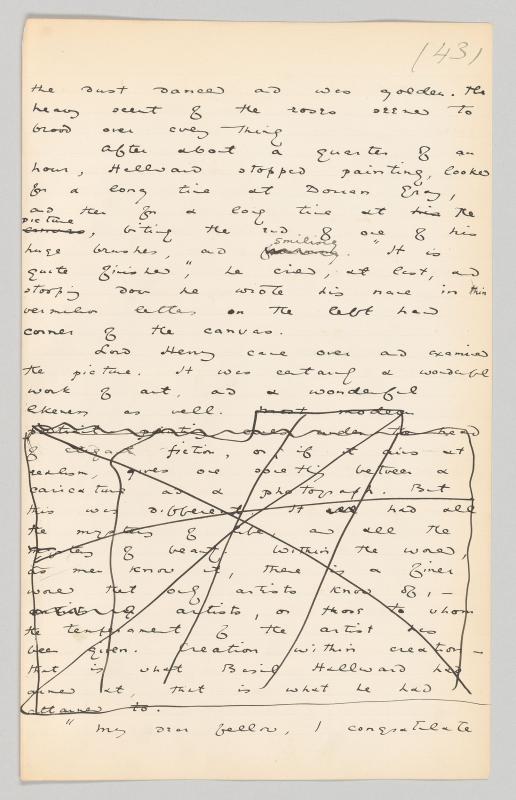 (43)
the dust danced and was golden. The
heavy scent of the roses seemed to
brood over every thing
After about a quarter of an
hour, Hallward stopped painting, looked
for a long time at Dorian Gray,
and then for a long time at his the
picture
, biting the end of one of his
smiling
huge brushes, and . "It is
quite finished", he cried, at last, and
stooping down he wrote his name in thin
vermilion letters on the left hand
corner of the canvas.
Lord Henry came over and examined
the picture. It was certainly a wonderful
work of art, and a wonderful
likeness as well. most modern
portrait painting comes under to head
of elegant fiction, or if it aims at
realism, gives one something between a
caricature and a photograph. But
this was different. It had all
the mystery of life, and all the
mystery of beauty. Within the world,
as men know it, there is a finer
world that only artists know of, —
artists, or those to whom
the temperament of the artist has
been given. Creation within creation —
that is what Basil Hallward had
aimed at, that is what he had
attained to.
"My dear fellow, I congratulate